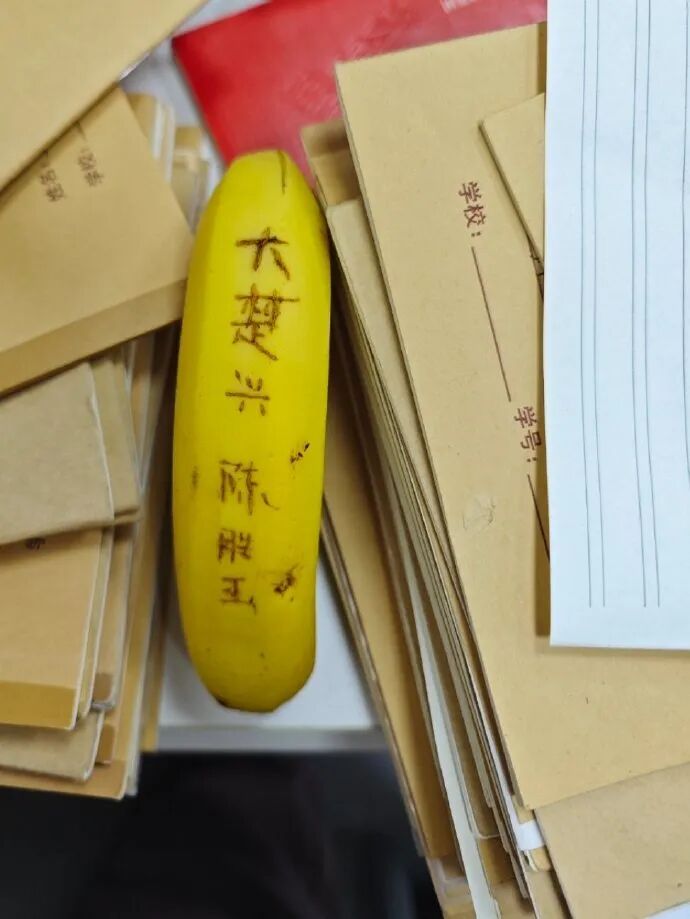 大楚兴 陈胜王
学校：
学号：
学校：